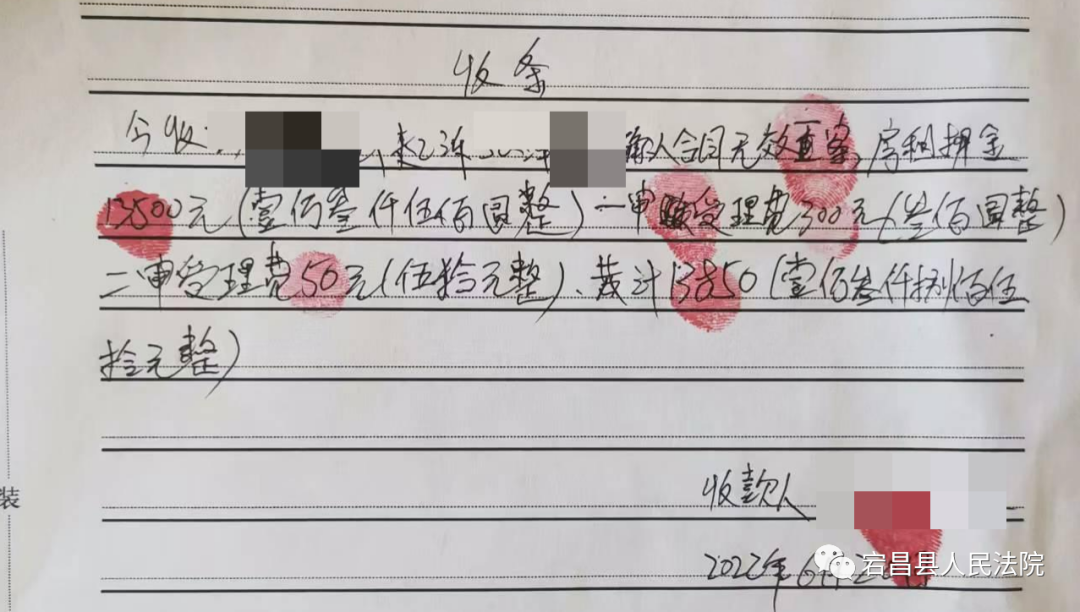 收条
今收: 确认合同无效 案,房租押金
13500元(壹佰叁仟伍佰圆整)一审受理费300元(叁佰圆整)
二审受理费50元(伍拾元整)、计13850(壹佰叁仟捌佰伍
拾元整)
装
收款人
2022年6月
宕昌县人民法院